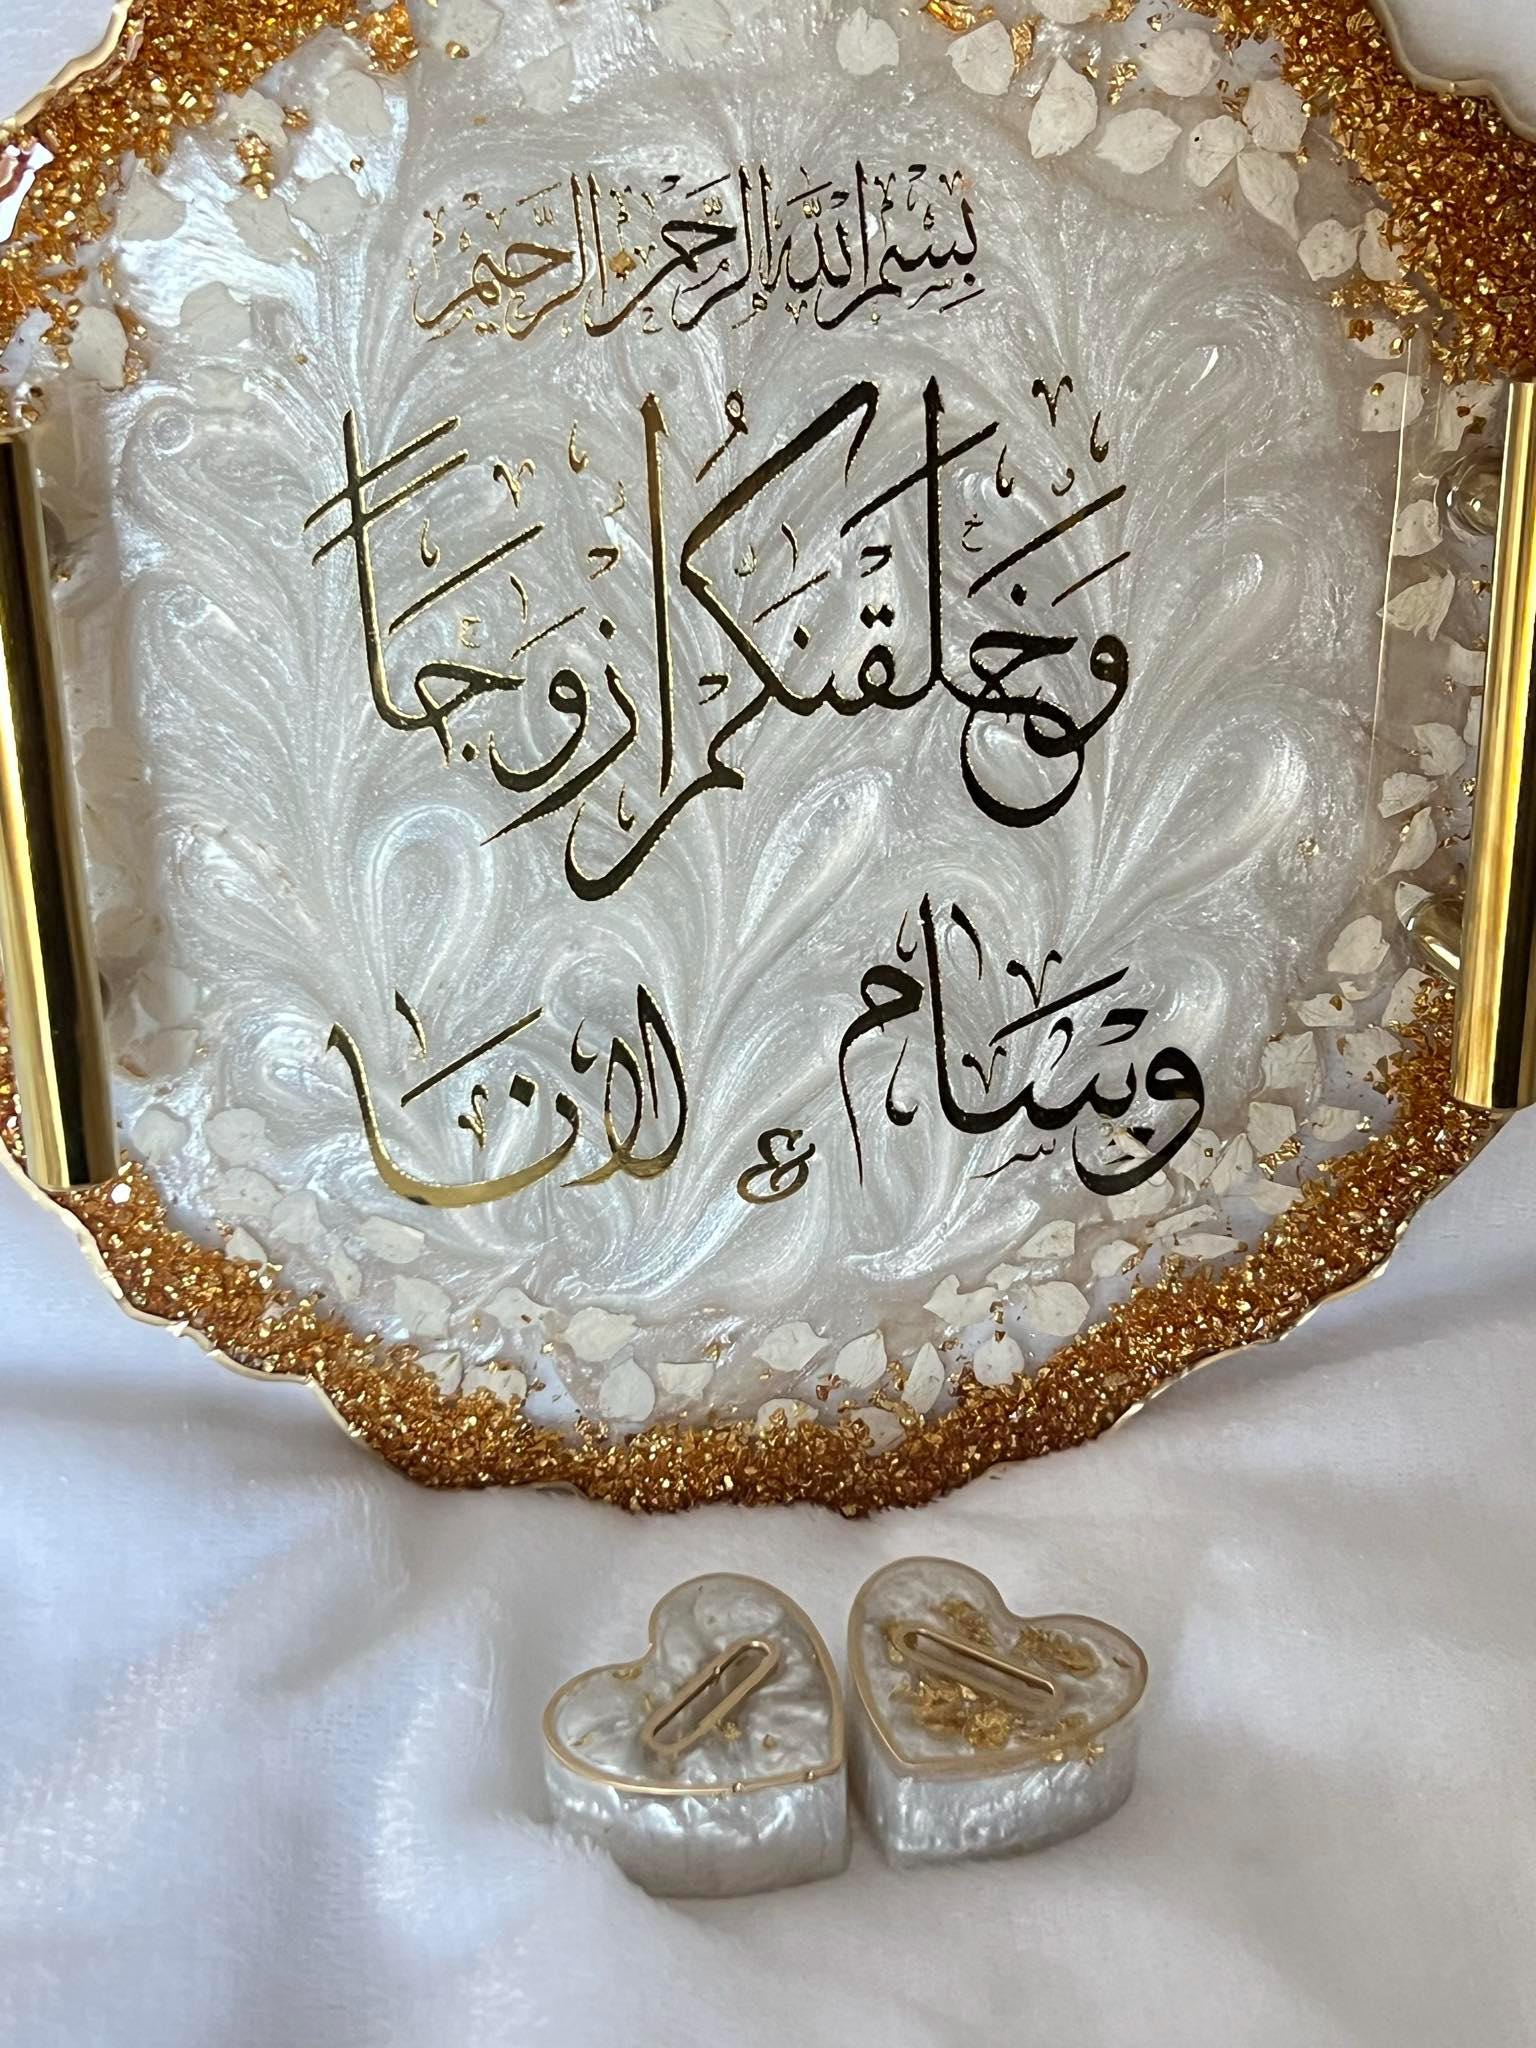 بِسْمِ اللَّهِ الرَّحْمَنِ الرَّحِيمِ
وَخَلَقْنَكُمْ أَزْوَجًا
وسام & لانا